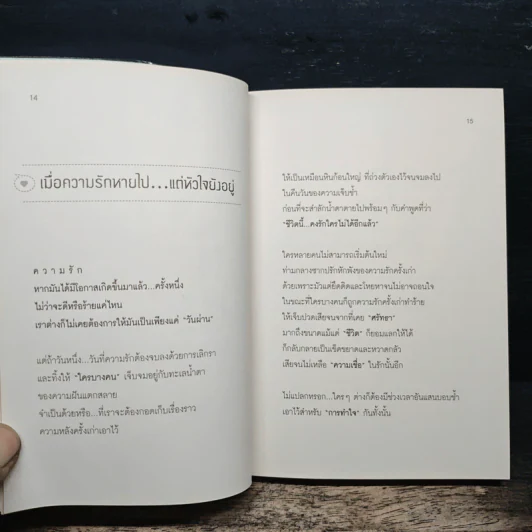 14
เมื่อความรักหายไป...แต่หัวใจยังอยู่
ความรัก
หากมันได้มีโอกาสเกิดขึ้นมาแล้ว...ครั้งหนึ่ง
ไม่ว่าจะดีหรือร้ายแค่ไหน
เราต่างก็ไม่เคยต้องการให้มันเป็นเพียงแค่ "วันผ่าน"
แต่ถ้าวันหนึ่ง...วันที่ความรักต้องจบลงด้วยการเลิกรา
และทิ้งให้ "ใครบางคน" เจ็บจมอยู่กับทะเลน้ำตา
ของความฝันแตกสลาย
จำเป็นด้วยหรือ...ที่เราจะต้องกอดเก็บเรื่องราว
ความหลังครั้งเก่าเอาไว้
15
ให้เป็นเหมือนหินก้อนใหญ่ ที่ถ่วงตัวเองไว้จนจมลงไป
ในคืนวันของความเจ็บช้ำ
ก่อนที่จะสำลักน้ำตาตายไปพร้อมๆ กับคำพูดที่ว่า
"ชีวิตนี้...คงรักใครไม่ได้อีกแล้ว"
ใครหลายคนไม่สามารถเริ่มต้นใหม่
ท่ามกลางซากปรักหักพังของความรักครั้งเก่า
ด้วยเพราะมัวแต่ยึดติดและโหยหาจนไม่อาจถอนใจ
ในขณะที่ใครบางคนก็ถูกความรักครั้งเก่าทำร้าย
ให้เจ็บปวดเสียจนจากที่เคย "ศรัทธา"
มากถึงขนาดแม้แต่ "ชีวิต" ก็ยอมแลกให้ได้
ก็กลับกลายเป็นเข็ดขยาดและหวาดกลัว
เสียจนไม่เหลือ "ความเชื่อ" ในรักนั้นอีก
ไม่แปลกหรอก...ใครๆ ต่างก็ต้องมีช่วงเวลาอันแสนบอบช้ำ
เอาไว้สำหรับ "การทำใจ" กันทั้งนั้น